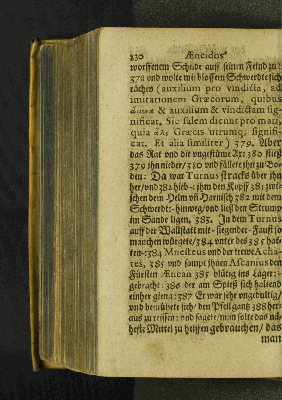 230 Æneidos
worffenem Schilde auff seinen Feind zu/
378 und wolte mit blossem Schwerdte sich
räches (auxilium pro vindicta, ad
imitationem Græcorum, quibus
& auxilium & vindictam sig-
nificat. Sic salem dicunt pro mari,
quia Græcis utrumq; signifi-
cat. Et alia similiter) 379. Aber
das Rot und die ungestüme Art 380 stieß
379 ihn nieder/380 und fället ihn zu Bo-
den: Da war Turnus stracks über ihn
her/und 382 hieb-: ihm den Kopff 381 zwi-
schen dem Helm uñ Harnisch 382 mit dem
Schwerdt-: hinweg/und ließ den Strump
im Sande ligen. 383. In dem Turnus
auff der Wallstatt mit-siegender-Faust so
manchen würgete/384 unter des 385 hat-
ten-:384 Mnesteus und der trewe Acha-
tes, 385 und sampt ihnen Ascanius den
Fürsten Æneam 385 blutig ins Läger:-
gebracht: 386 der am Spieß sich haltend
einher gieng: 387 Er war sehr ungedultig/
und bemühete sich/den Pfeil gantz 388 her-
aus zu reissen: und sagete/man solte das näh-
heste Mittel zu helffen gebrauchen/das
man